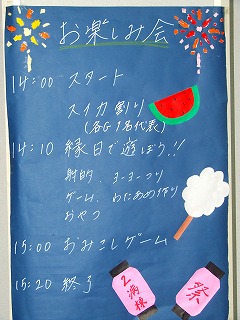 お楽しみ会
14:00 スタート
スイカ割り
(各G1名代表)
14:10 縁日で遊ぼう!!
射的、ヨーヨーつり
ゲーム、わたあめ作り
おやつ
15:00 おみこしゲーム
15:20 終了
2病棟
祭